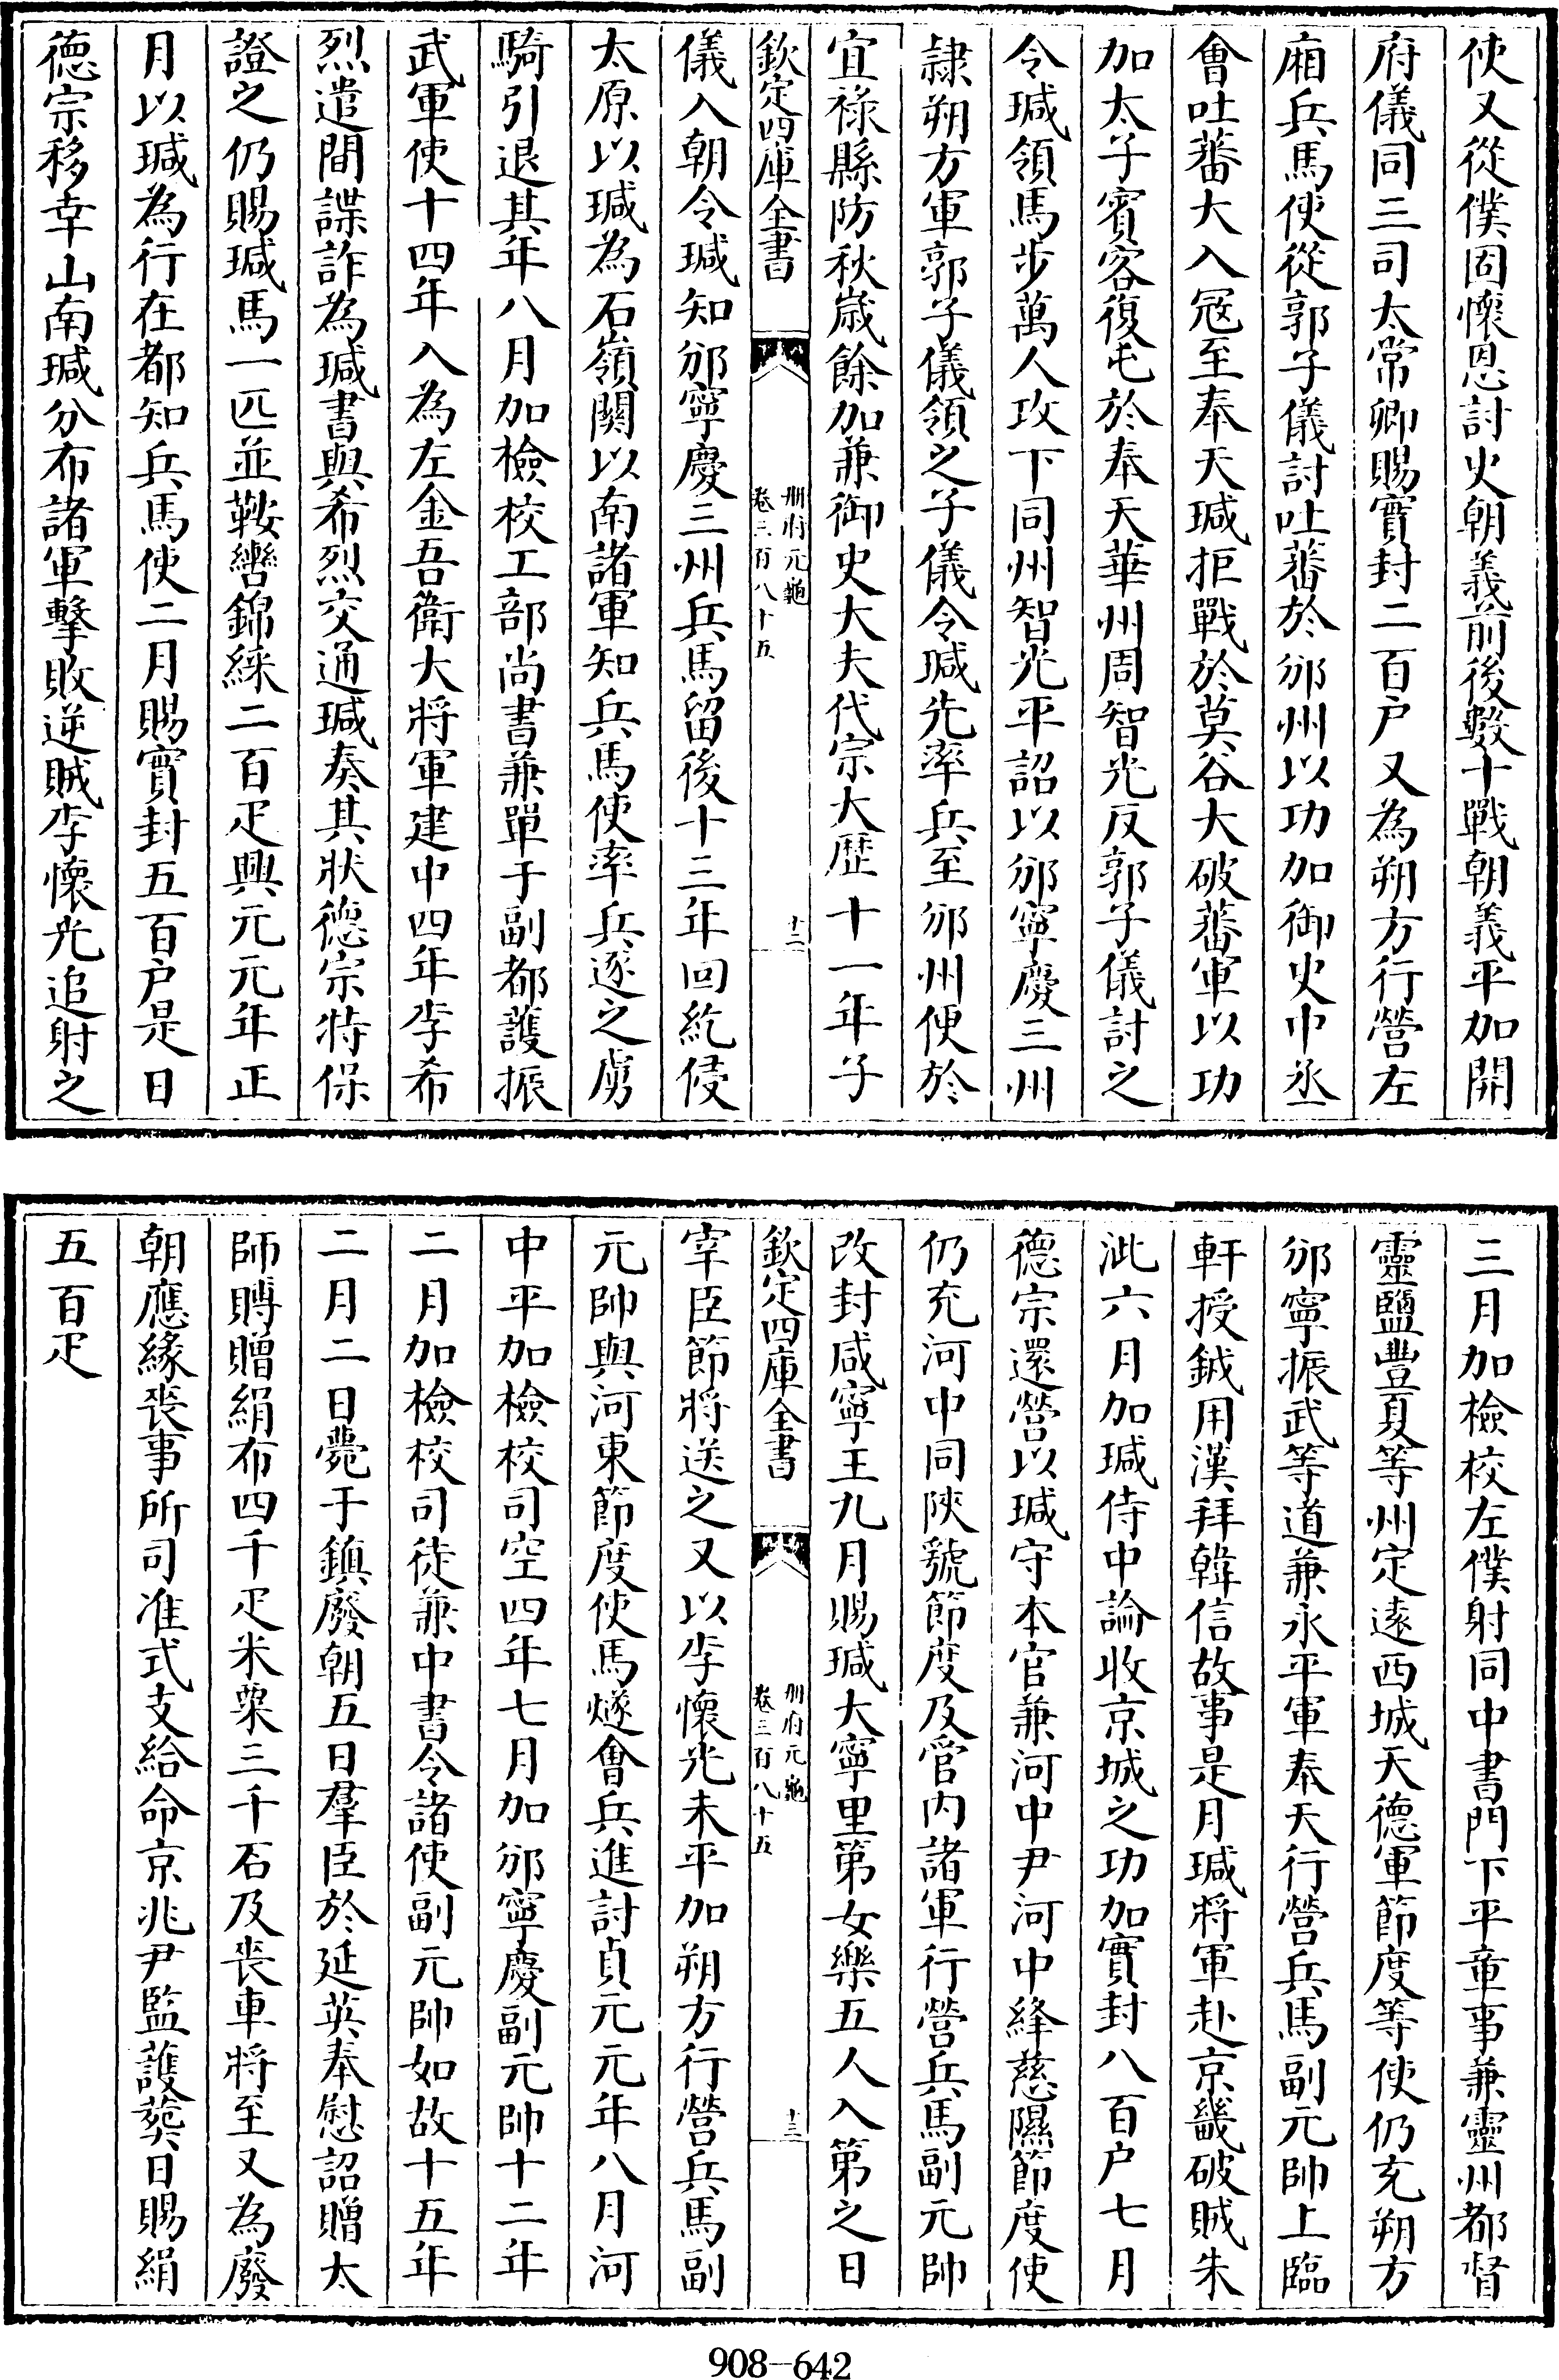 使又從僕固懷恩討史朝義前後數十戰朝義平加開
府儀同三司太常卿賜實封二百户又為朔方行營左
廂兵馬使從郭子儀討吐蕃於邠州以功加御史中丞
會吐蕃大入冦至奉天瑊拒戰於莫谷大破蕃軍以功
加太子賓客復屯於奉天華州周智光反郭子儀討之
令瑊領馬步萬人攻下同州智光平詔以邠寧慶三州
隷朔方軍郭子儀領之子儀令瑊先率兵至邠州便於
宜祿縣防秋歲餘加兼御史大夫代宗大歴十一年子
欽定四庫全書
册府元龜
卷三百八十五
十二
儀入朝令瑊知邠寧慶三州兵馬留後十三年回紇侵
太原以瑊為石嶺關以南諸軍知兵馬使率兵逐之虜
騎引退其年八月加檢校工部尚書兼單于副都護振
武軍使十四年入為左金吾衛大將軍建中四年李希
烈遣間諜詐為瑊書與希烈交通瑊奏其狀德宗特保
證之仍賜瑊馬一匹並鞍轡錦綵二百疋興元元年正
月以瑊為行在都知兵馬使二月賜實封五百户是日
德宗移幸山南瑊分布諸軍擊敗逆賊李懷光追射之
三月加檢校左僕射同中書門下平章事兼靈州都督
靈鹽豐夏等州定遠西城天德軍節度等使仍充朔方
邠寧振武等道兼永平軍奉天行營兵馬副元帥上臨
軒授鉞用漢拜韓信故事是月瑊將軍赴京畿破賊朱
泚六月加瑊侍中論收京城之功加實封八百户七月
德宗還營以瑊守本官兼河中尹河中絳慈隰節度使
仍充河中同陜虢節度及管内諸軍行營兵馬副元帥
改封咸寧王九月賜瑊大寧里第女樂五人入第之日
欽定四庫全書
册府元龜
卷三百八十五
十三
宰臣節將送之又以李懷光未平加朔方行營兵馬副
元帥與河東節度使馬燧會兵進討貞元元年八月河
中平加檢校司空四年七月加邠寧慶副元帥十二年
二月加檢校司徒兼中書令諸使副元帥如故十五年
二月二日薨于鎮廢朝五日羣臣於延英奉慰詔贈太
師賻贈絹布四千疋米粟三千石及喪車將至又為廢
朝應緣喪事所司准式支給命京兆尹監護葬日賜絹
五百疋
908-642